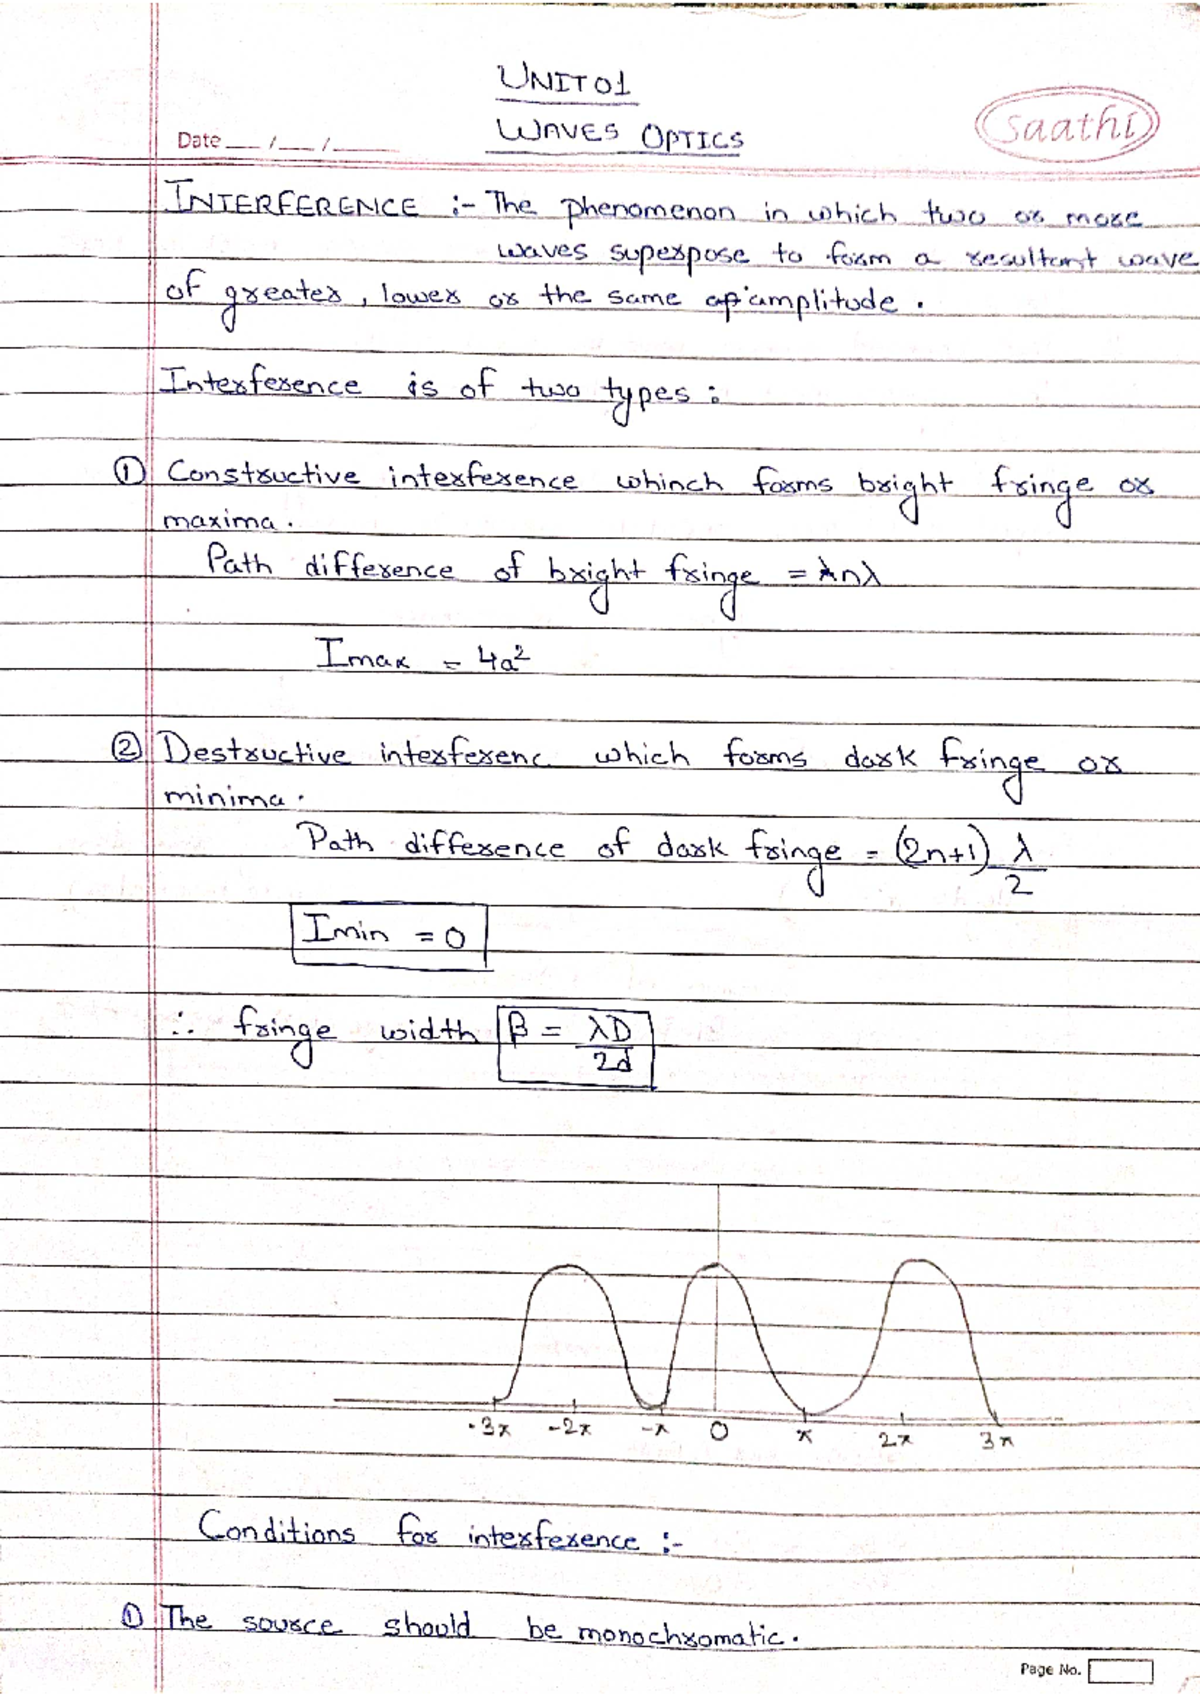 UNIT 01
WAVES OPTICS
Saathi
Date ___ / ___ / ______
INTERFERENCE :- The phenomenon in which two or more
waves superpose to form a resultant wave
of greater, lower or the same amplitude.
Interference is of two types :
① Constructive interference whinch forms bright fringe or
maxima.
Path difference of bright fringe = nλ
Imax = 4a²
② Destructive interferenc which forms dark fringe or
minima.
Path difference of dark fringe = (2n+1) λ/2
Imin = 0
∴ fringe width β = λD/2d
-3π -2π -π 0 π 2π 3π
Conditions for interference :-
① The source should be monochromatic.
Page No.